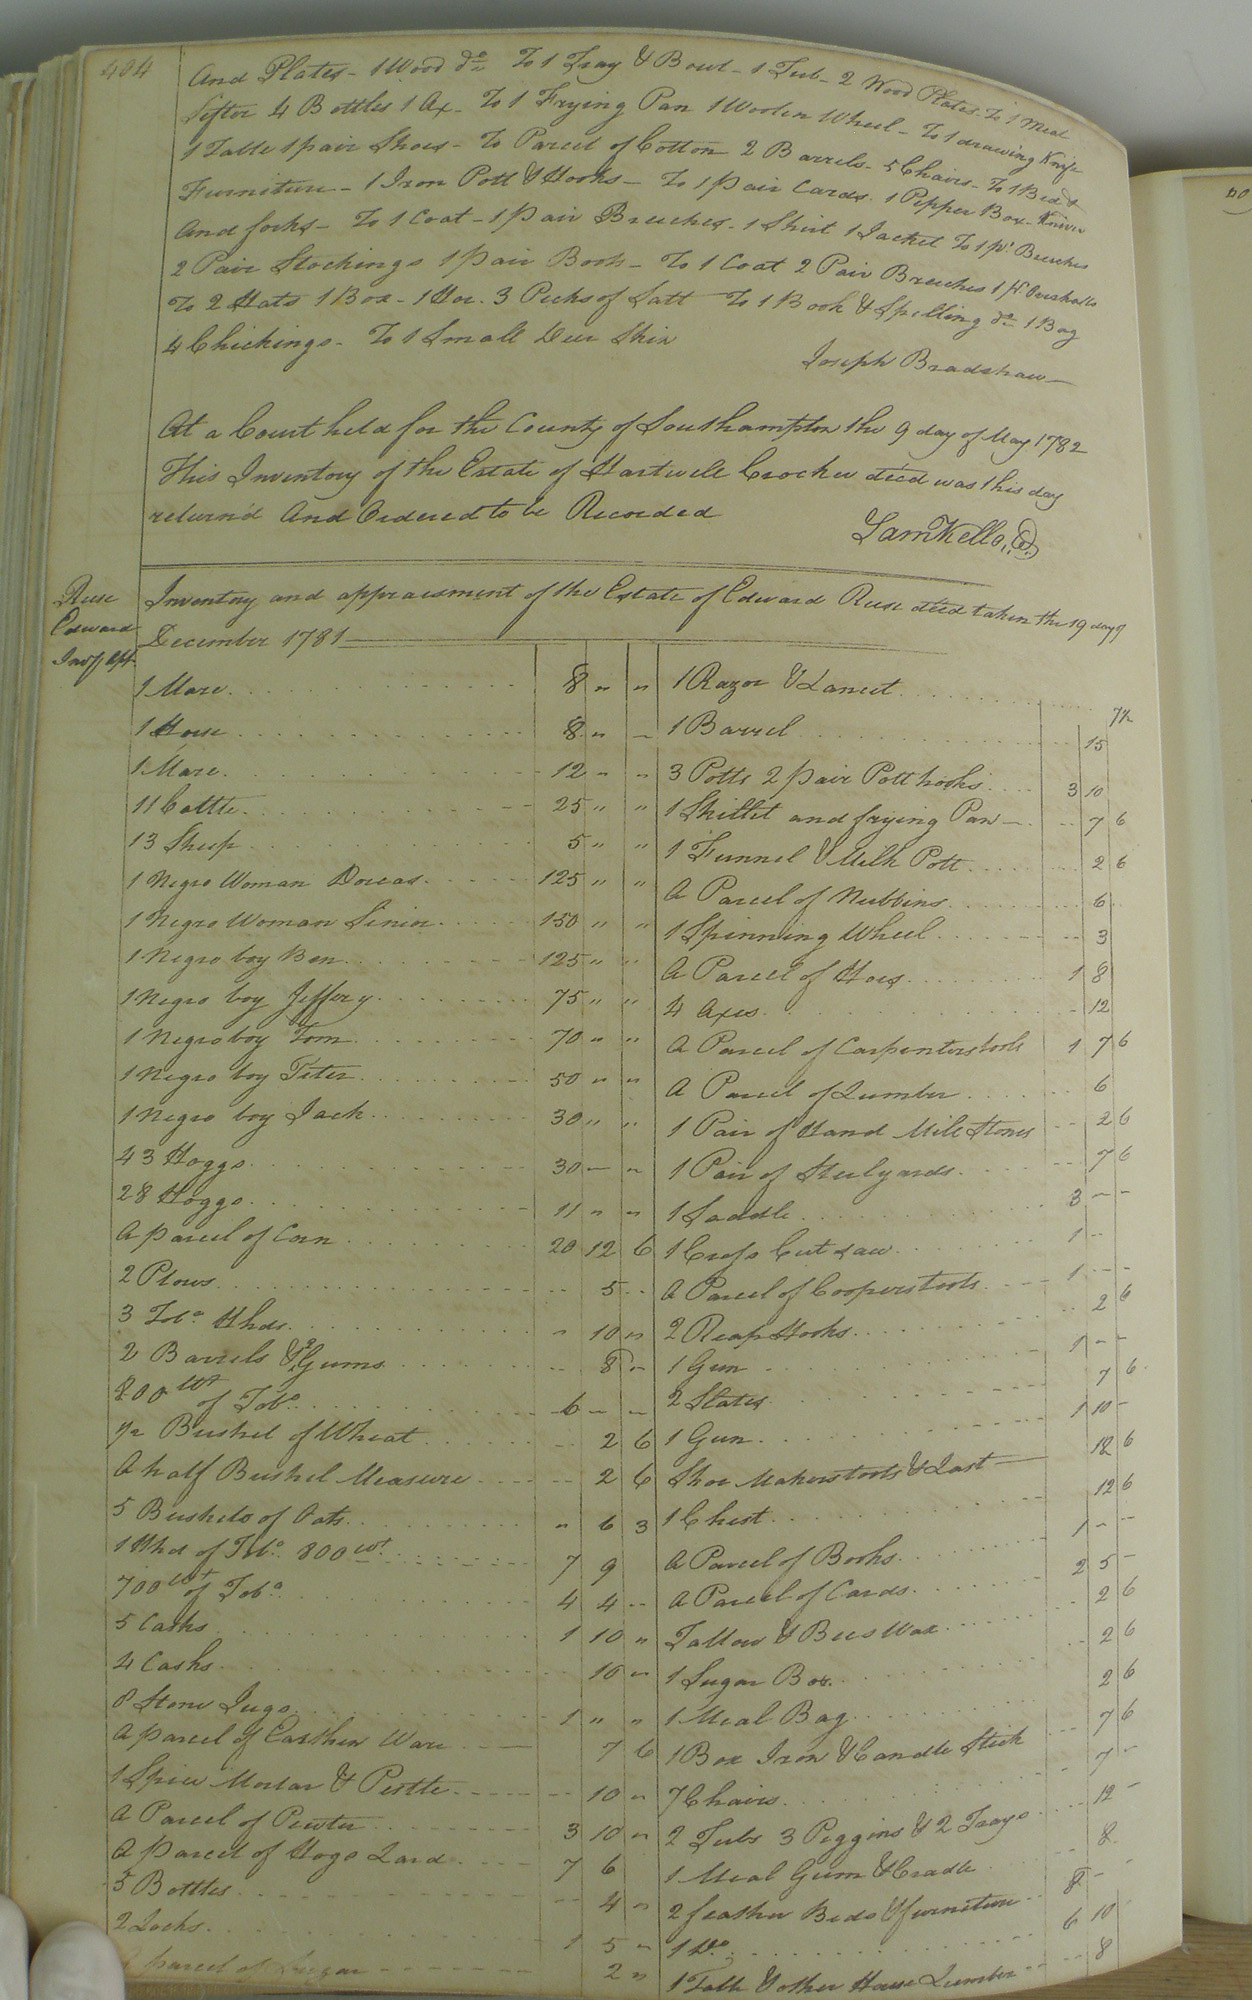 404
And Plates - 1 Wood do To 1 Tray & Bowl - 1 Tub - 2 Wood Plates - To 1 Meal
Sifter 4 Bottles 1 Ax - To 1 Frying Pan 1 Woolen Wheel - To 1 drawing Knife
1 Table 1 pair Shoes - To Parcel of Cotton 2 Barrels - 5 Chairs - To 1 Bed &
Furniture - 1 Iron Pott & Hooks - To 1 pair Cards. 1 Pepper Box - Knives
And forks - To 1 Coat - 1 pair Breeches - 1 Shirt 1 Jacket To 1 pr. Breeches
2 Pair Stockings 1 pair Boots - To 1 Coat 2 Pair Breeches 1 pr. Overhalls
To 2 Hats 1 Box - 1 Hoe. 3 Pecks of Salt To 1 Book & Spelling do 1 Bag
4 Chickings - To 1 Small Deer Skin
Joseph Bradshaw
At a Court held for the County of Southampton the 9 day of May 1782
This Inventory of the Estate of Hartwell Crocker decd was this day
return'd And Ordered to be Recorded
Saml Kello,
Ruse
Edward
Inv & Apt
Inventory and appraisment of the Estate of Edward Ruse decd taken the 19 day of
December 1781
1 Mare 8 " "
1 Horse 8 " -
1 Mare 12 " "
11 Cattle 25 " "
13 Sheep 5 " "
1 Negro Woman Dorcas 125 " "
1 Negro Woman Sinior 150 " "
1 Negro boy Ben 125 " "
1 Negro boy Jeffery 75 " "
1 Negro boy Tom 70 " "
1 Negro boy Peter 50 " "
1 Negro boy Jack 30 " "
43 Hoggs 30 - "
28 Hoggs 11 " "
A parcel of Corn 20 12 6
2 Plows 5 -
3 Tobo. Hhds. " 10 "
2 Barrels & 2 Gums 8 -
800 wt of Tobo. 6 - -
1/2 Bushel of Wheat 2 6
A half Bushel Measure 2 6
5 Bushels of Oats " 6 3
1 Hhd of Tobo. 800 wt. 7 9
700 wt of Tobo 4 4 -
5 Casks 1 10 "
4 Casks 10 "
8 Stone Jugs 1 " "
A parcel of Earthen Ware 7 6
1 Spice Mortar & Pestle 10 "
A Parcel of Pewter 3 10 "
A parcel of Hogs Lard 7 6
5 Bottles 4 "
2 Locks 1 5 "
A parcel of Sugar 2 "
1 Razor & Lancet 7½
1 Barrel 15
3 Potts 2 pair Pott hooks 3 10
1 Skillet and frying Pan 7 6
1 Funnel & Milk Pott 2 6
A Parcel of Nubbins 6
1 Spinning Wheel 3
A Parcel of Hoes 1 8
4 Axes 12
A Parcel of Carpenters tools 1 7 6
A Parcel of Lumber 6
1 Pair of Hand Mile Stones 2 6
1 Pair of Steelyards 7 6
1 Saddle 3 - -
1 Cross Cut saw 1 -
A Parcel of Coopers tools 1 - -
2 Reap Hooks 2 6
1 Gun 1 - -
2 Slates 7 6
1 Gun 1 10 -
Shoe Makers tools & Last 12 6
1 Chest 12 6
A Parcel of Books 1 - -
A Parcel of Cards 2 5 -
Tallow & Bees Wax 2 6
1 Sugar Box 2 6
1 Meal Bag 2 6
1 Box Iron & Candle Stick 7 6
7 Chairs 7 -
2 Tubs 3 Piggins & 2 Trays 12 -
1 Meal Gum & Cradle 8
2 feather Beds & furniture 8 -
1 Do. 6 10
1 Table & other House Lumber 8